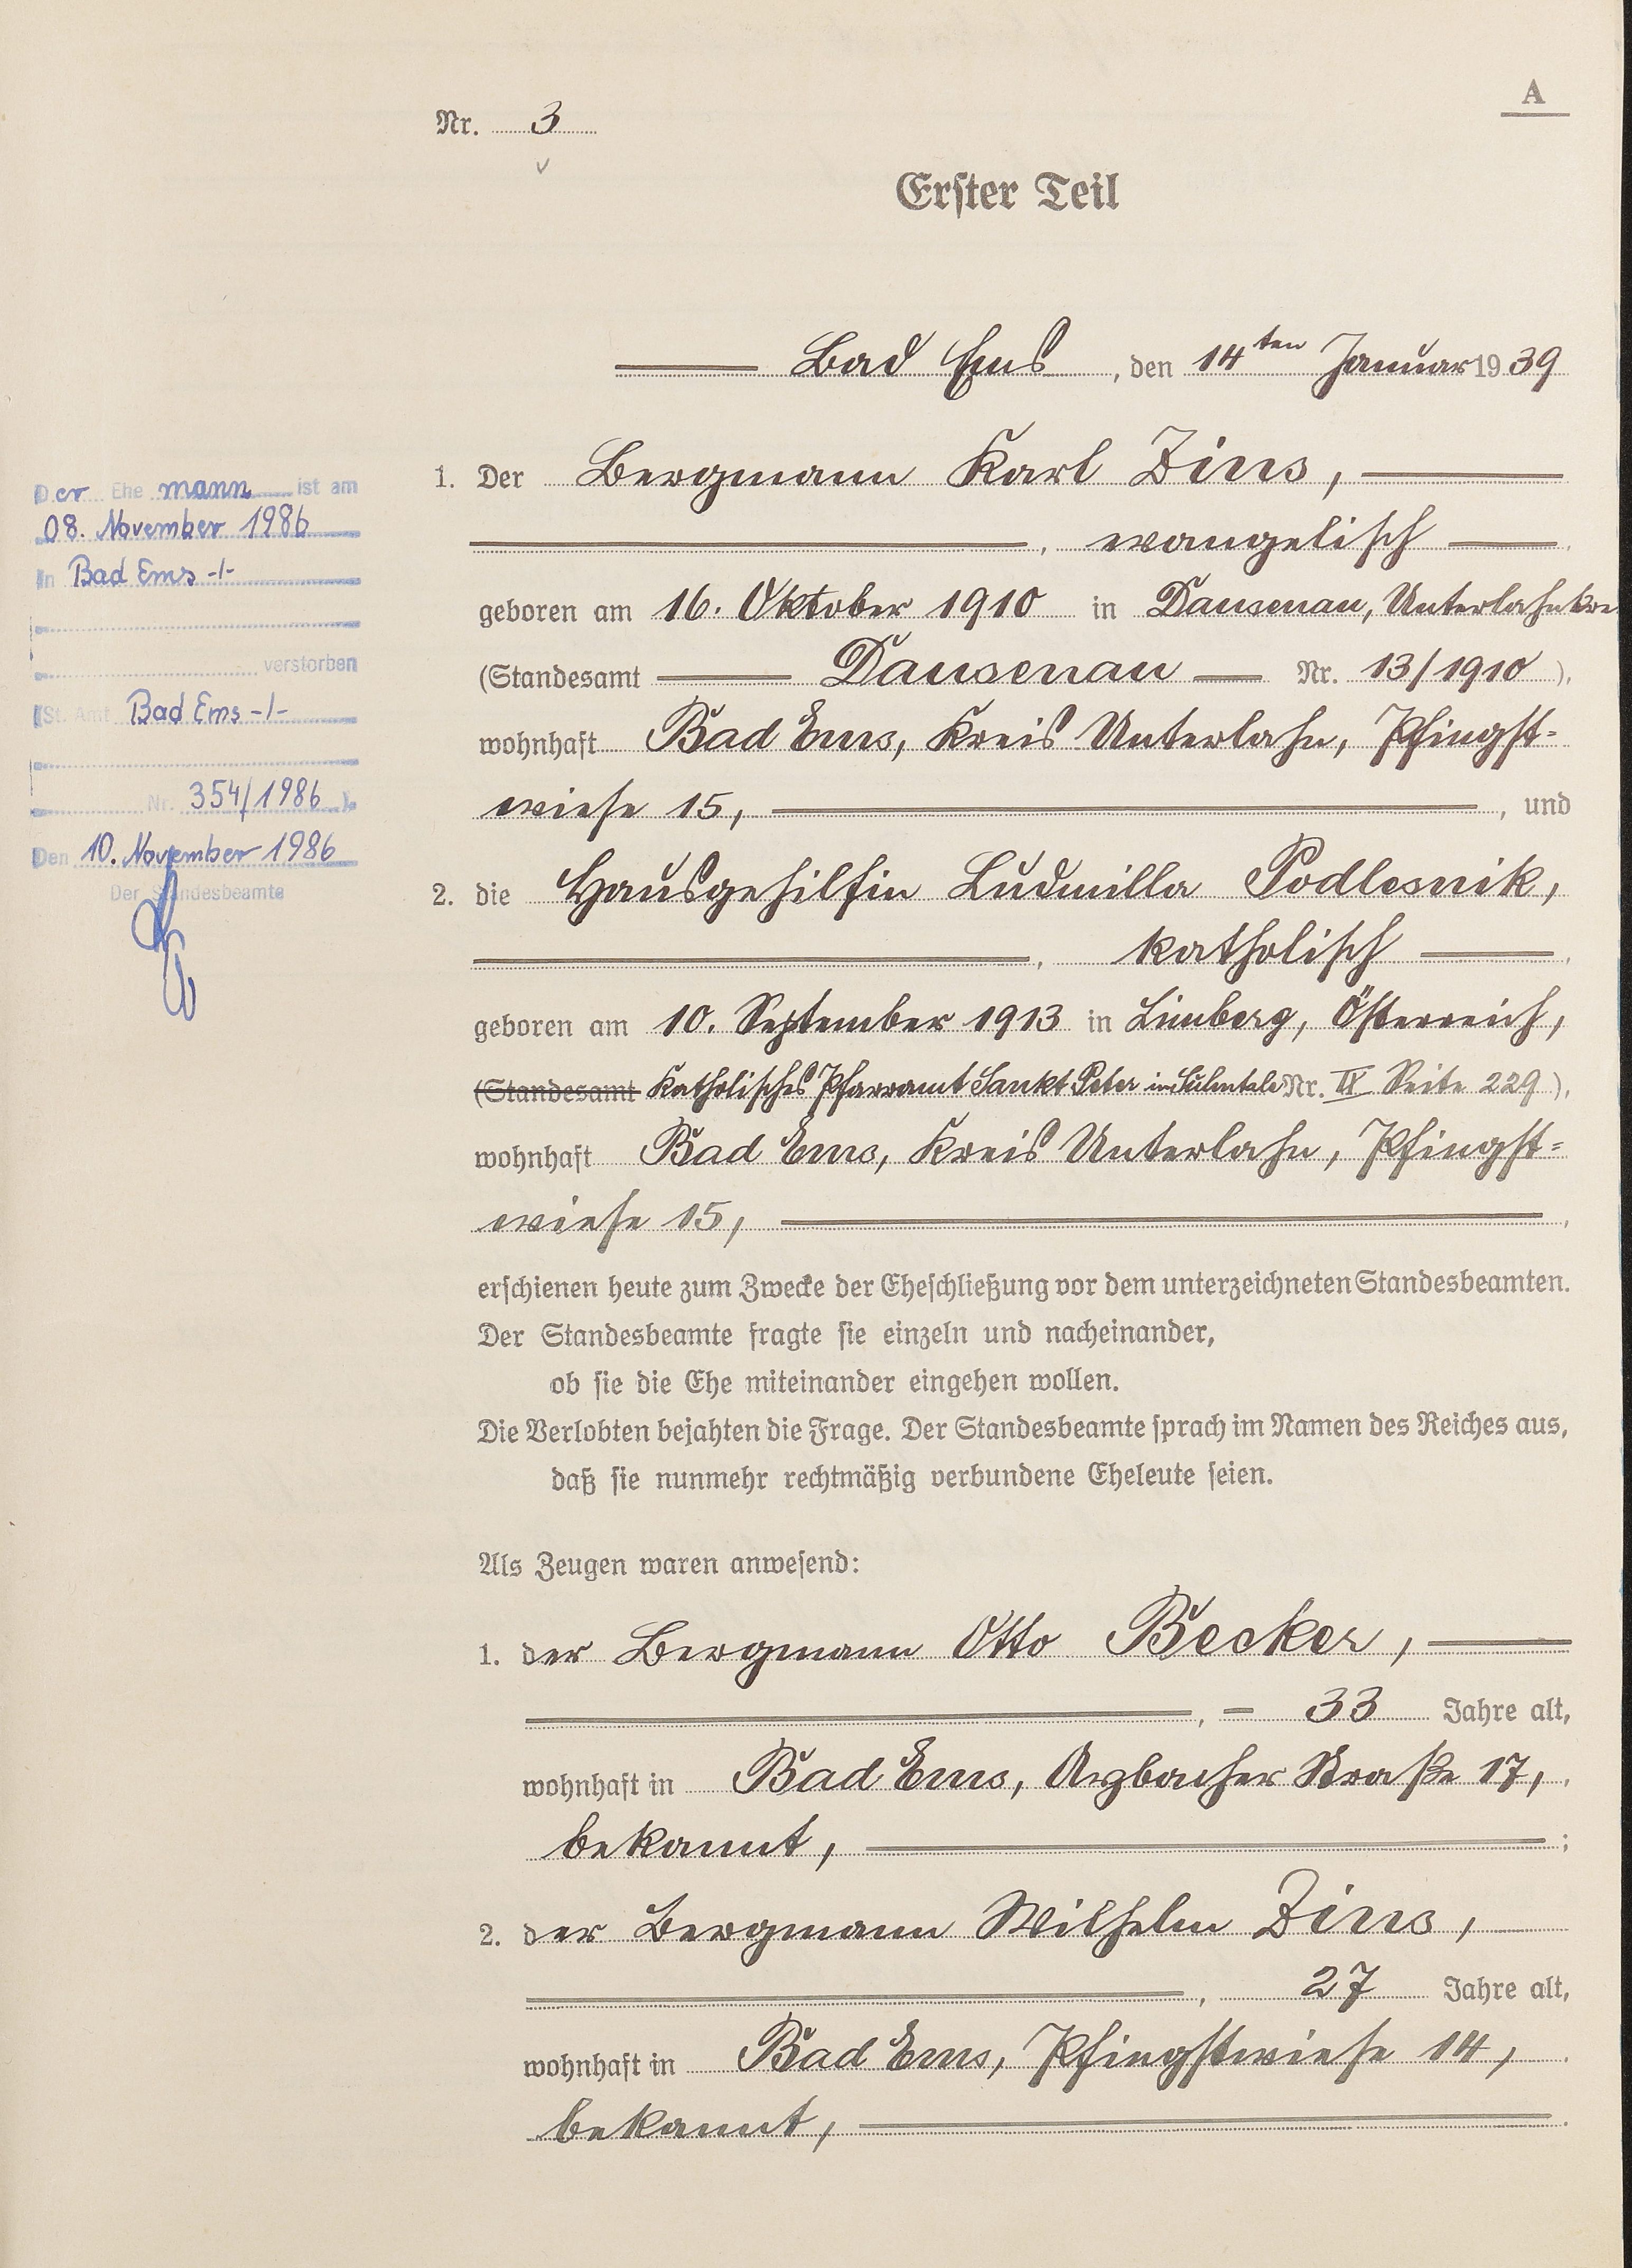 A
Nr. 3
Erster Teil
Bad Ems, den 14ten Januar 1939
1. Der Bergmann Karl Zins,
, evangelisch,
geboren am 16. Oktober 1910 in Dausenau, Unterlahnkre
(Standesamt Dausenau Nr. 13/1910),
wohnhaft Bad Ems, Kreis Unterlahn, Pfingst=
wiese 15, , und
2. die Hausgehilfin Ludmilla Podlesnik,
, katholisch,
geboren am 10. September 1913 in Limberg, Österreich,
(Standesamt Katholisches Pfarramt Sankt Peter im Sulmtale Nr. IX Seite 229),
wohnhaft Bad Ems, Kreis Unterlahn, Pfingst=
wiese 15, ,
erschienen heute zum Zwecke der Eheschließung vor dem unterzeichneten Standesbeamten.
Der Standesbeamte fragte sie einzeln und nacheinander,
ob sie die Ehe miteinander eingehen wollen.
Die Verlobten bejahten die Frage. Der Standesbeamte sprach im Namen des Reiches aus,
daß sie nunmehr rechtmäßig verbundene Eheleute seien.
Als Zeugen waren anwesend:
1. der Bergmann Otto Becker,
, 33 Jahre alt,
wohnhaft in Bad Ems, Arzbacher Straße 17,
bekannt, ;
2. der Bergmann Wilhelm Zins,
, 27 Jahre alt,
wohnhaft in Bad Ems, Pfingstwiese 14,
bekannt, .
Der Ehemann ist am
08. November 1986
in Bad Ems -/-
verstorben
(St. Amt Bad Ems -/-
Nr. 354/1986).
Den 10. November 1986
Der Standesbeamte